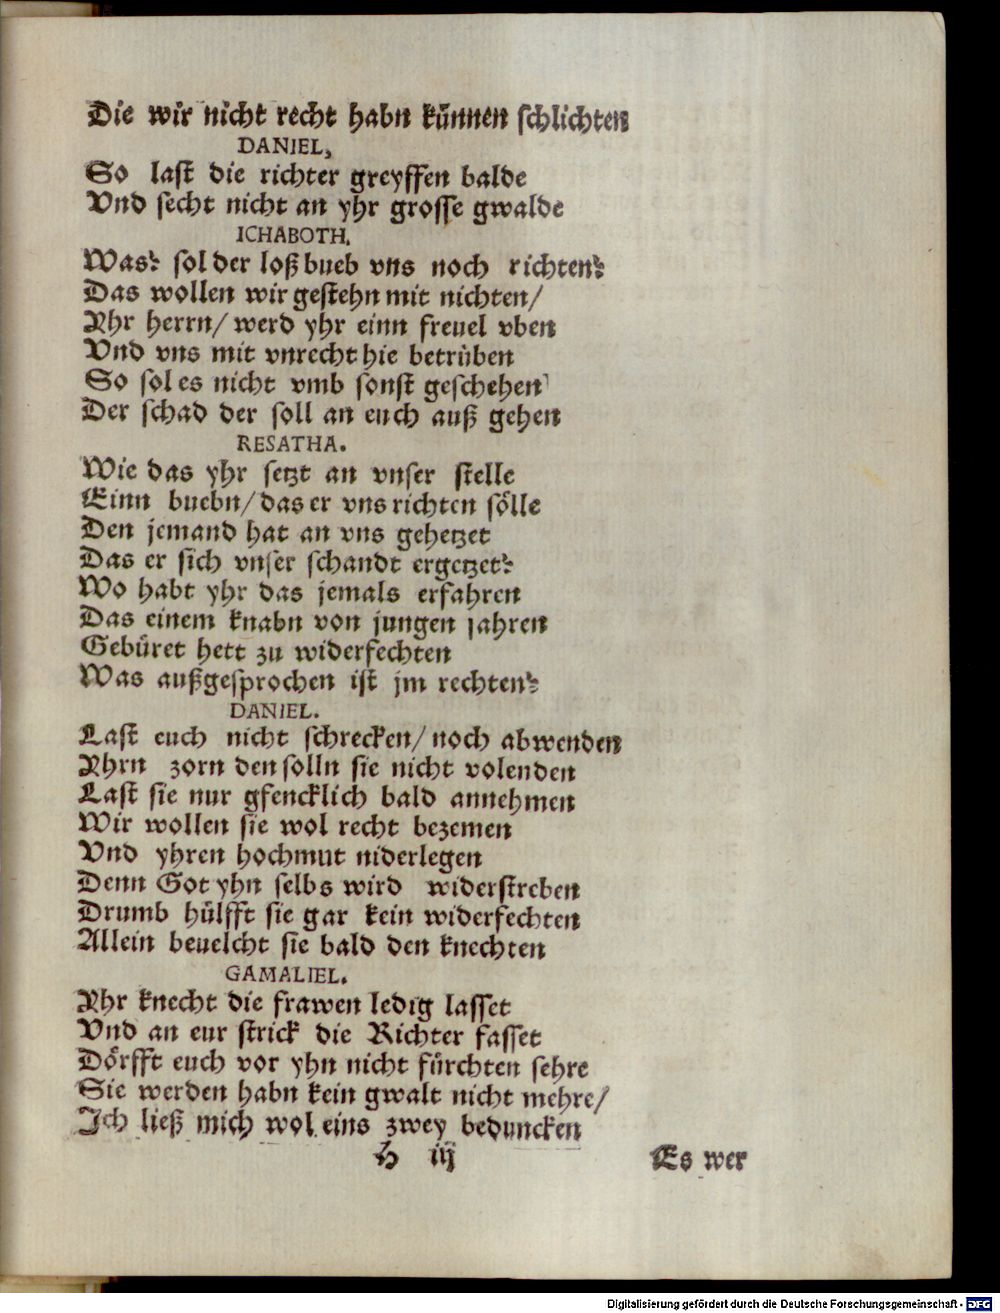 Die wir nicht recht habn künnen schlichten
DANIEL,
So last die richter greyffen balde
Vnd secht nicht an yhr grosse gwalde
ICHABOTH.
Was? sol der loß bueb vns noch richten?
Das wollen wir gestehn mit nichten/
Yhr herrn/ werd yhr einn freuel vben
Vnd vns mit vnrecht hie betrüben
So sol es nicht vmb sonst geschehen
Der schad der soll an euch auß gehen
RESATHA.
Wie das yhr setzt an vnser stelle
Einn buebn/ das er vns richten sölle
Den jemand hat an vns gehetzet
Das er sich vnser schandt ergetzet?
Wo habt yhr das jemals erfahren
Das einem knabn von jungen jahren
Gebüret hett zu widerfechten
Was außgesprochen ist jm rechten?
DANIEL.
Last euch nicht schrecken/ noch abwenden
Yhrn zorn den solln sie nicht volenden
Last sie nur gfencklich bald annehmen
Wir wollen sie wol recht bezemen
Vnd yhren hochmut niderlegen
Denn Got yhn selbs wird widerstreben
Drumb hülfft sie gar kein widerfechten
Allein beuelcht sie bald den knechten
GAMALIEL.
Yhr knecht die frawen ledig lasset
Vnd an eur strick die Richter fasset
Dörfft euch vor yhn nicht fürchten sehre
Sie werden habn kein gwalt nicht mehre/
Ich ließ mich wol eins zwey beduncken
H iij Es wer
Digitalisierung gefördert durch die Deutsche Forschungsgemeinschaft - DFG